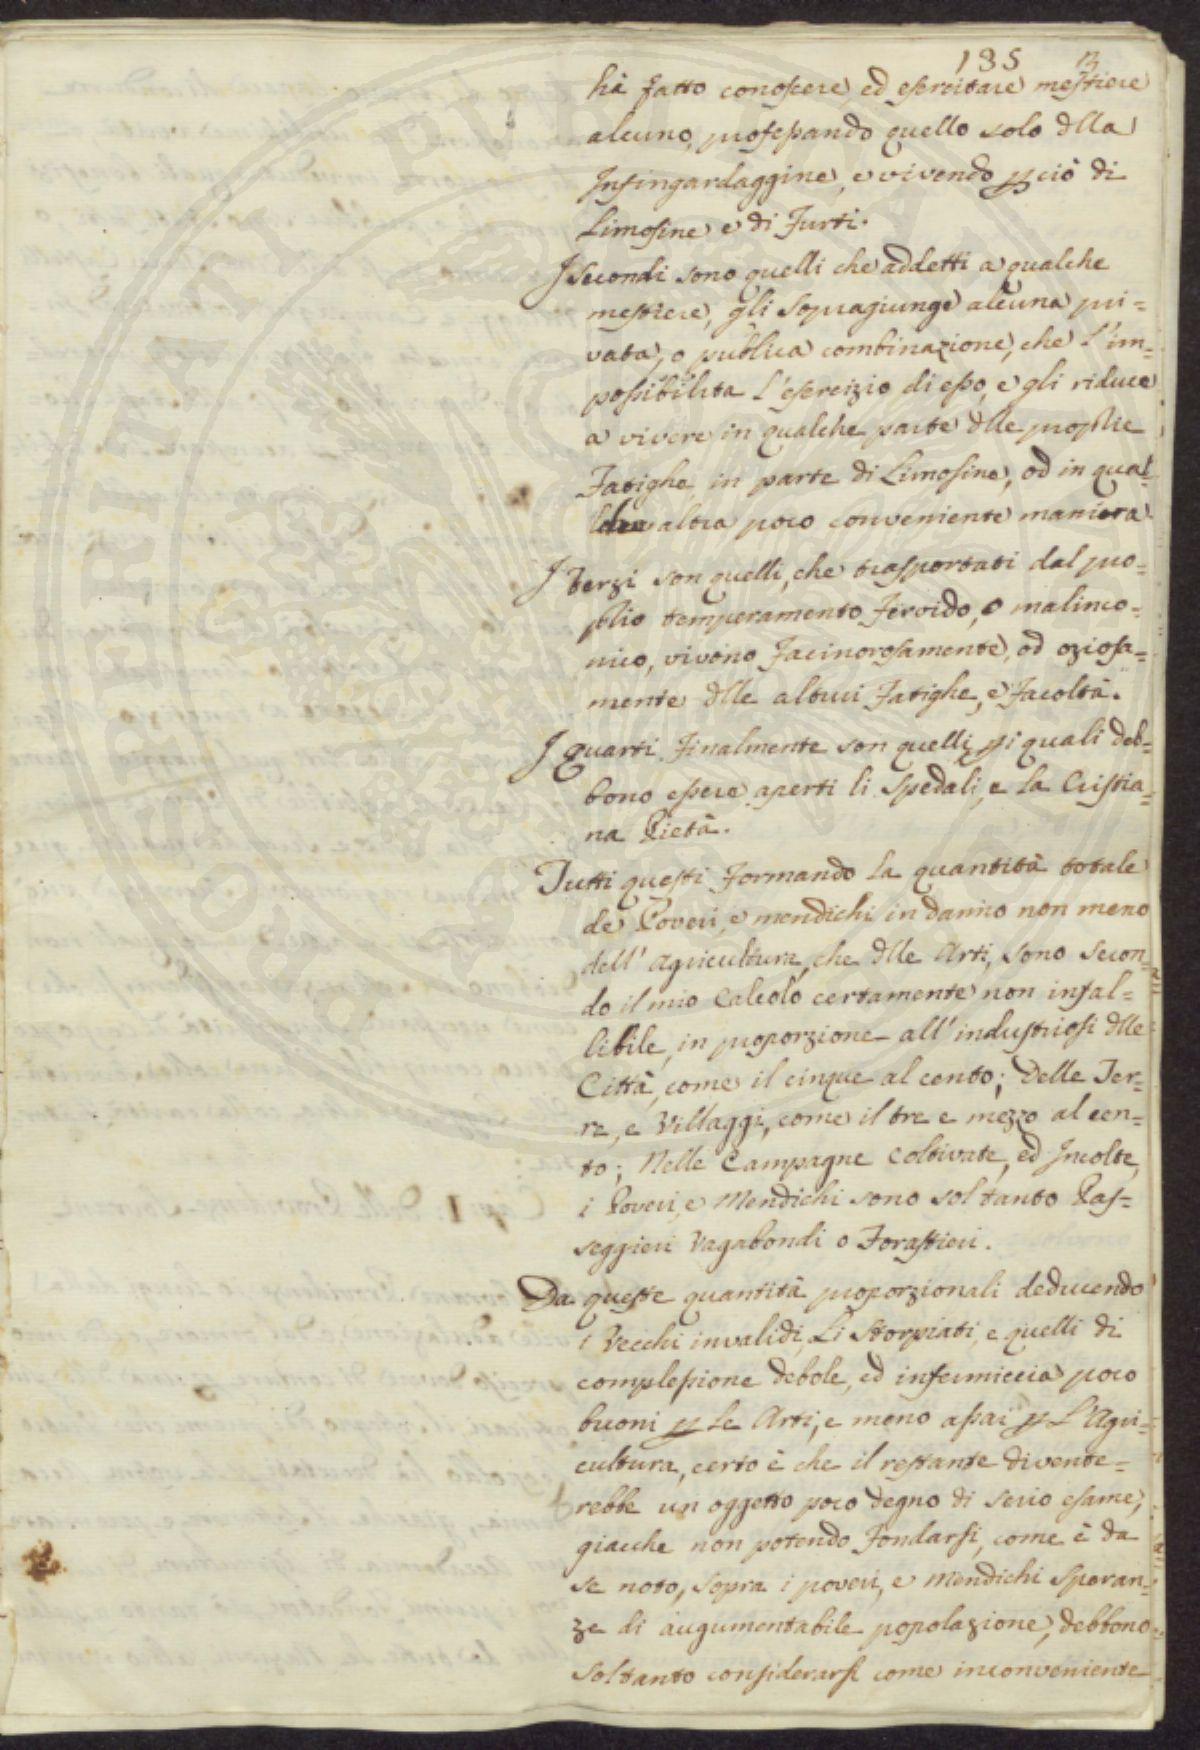 185 13
hà fatto conoscere, ed esercitare mestiere
alcuno, professando quello solo dlla
Infingardaggine, e vivendo p ciò di
Limosine e di Furti.
I secondi sono quelli che addetti a qualche
mestiere, gli sopragiunge alcuna pri=
vata, o publica combinazione, che l'im=
possibilita l'esercizio di esso, e gli riduce
a vivere in qualche parte dlle proprie
Fatighe, in parte di Limosine, od in qual=
che altra poco conveniente maniera.
I Terzi son quelli, che trasportati dal pro=
prio temperamento fervido, o malinco=
nico, vivono facinorosamente, od oziosa=
mente dlle altrui Fatighe, e Facoltà.
I quarti finalmente son quelli, p i quali deb=
bono essere aperti li Spedali, e la Cristia=
na Pietà.
Tutti questi formando la quantità totale
de Poveri, e mendichi in danno non meno
dell' agricultura, che dlle Arti, sono secon=
do il mio Calcolo certamente non infal=
libile, in proporzione all' industriosi dlle
Città, come il cinque al cento; Delle Ter=
re, e Villaggi, come il tre e mezzo al cen=
to; Nelle Campagne Coltivate, ed Incolte,
i Poveri, e Mendichi sono soltanto Pas=
seggieri Vagabondi o Forastieri.
Da queste quantità proporzionali deducendo
i Vecchi invalidi, Li Storpiati, e quelli di
complessione debole, ed infermiccia poco
buoni p le Arti, e meno assai p l'Agri=
cultura, certo è che il restante divente=
rebbe un oggetto poco degno di serio esame,
giacche non potendo fondarsi, come è da
se noto, sopra i poveri, e Mendichi speran=
ze di augumentabile popolazione, debbono
soltanto considerarsi come inconveniente
PUBLICAE
PROSPERITATI